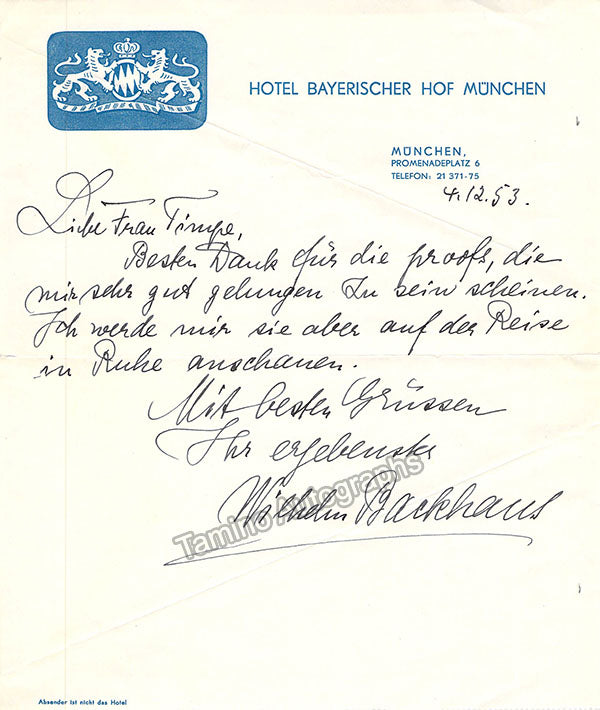 HOTEL BAYERISCHER HOF MÜNCHEN
MÜNCHEN,
PROMENADEPLATZ 6
TELEFON: 21 371-75
4.12.53.
Liebe Frau Timpe,
Besten Dank für die proofs, die
mir sehr gut gelungen zu sein scheinen.
Ich werde mir sie aber auf der Reise
in Ruhe anschauen.
Mit besten Grüssen
Ihr ergebenster
Wilhelm Backhaus
Tamino Autographs
Absender ist nicht das Hotel